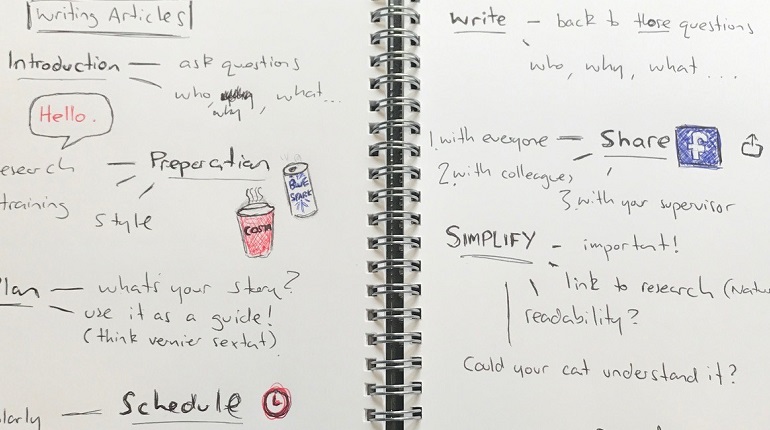 Writing Articles
Introduction — ask questions
who, why, what...
Hello.
esearch — Preperation
training style
BLUE SPARK
COSTA
lan — what's your story?
use it as a guide!
(think vernier sextat)
larly — Schedule
Write - back to those questions
who, why, what ...
1. with everyone — Share f
2. with colleagues
3. with your supervisor
SIMPLIFY - important!
link to research (Natu
readability?
Could your cat understand it?